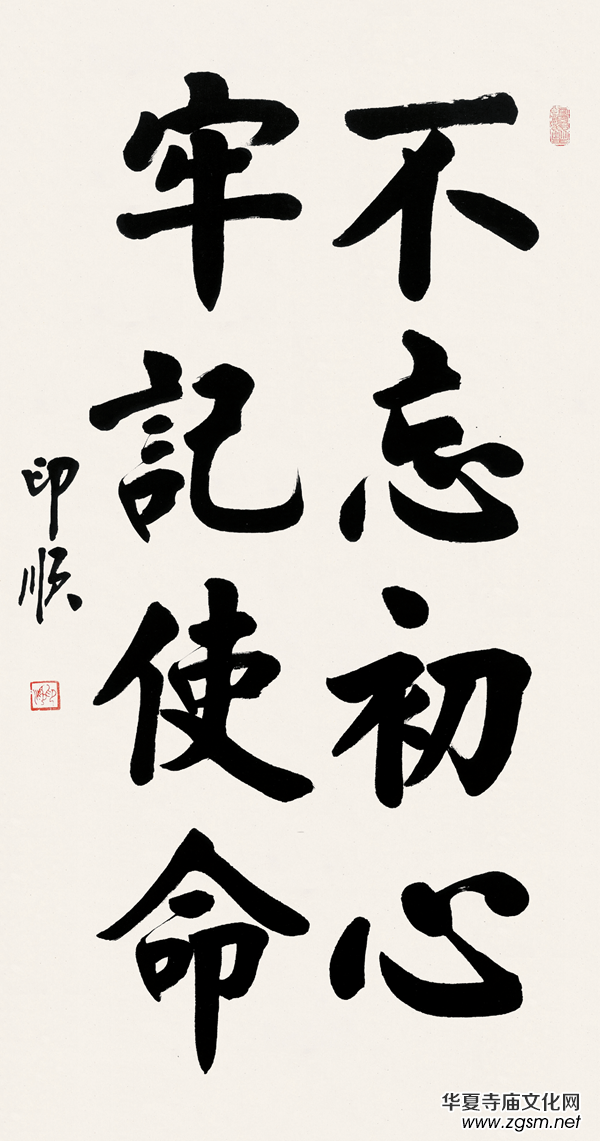 不忘初心
牢記使命
印顺
华夏寺庙文化网
www.zgsm.net